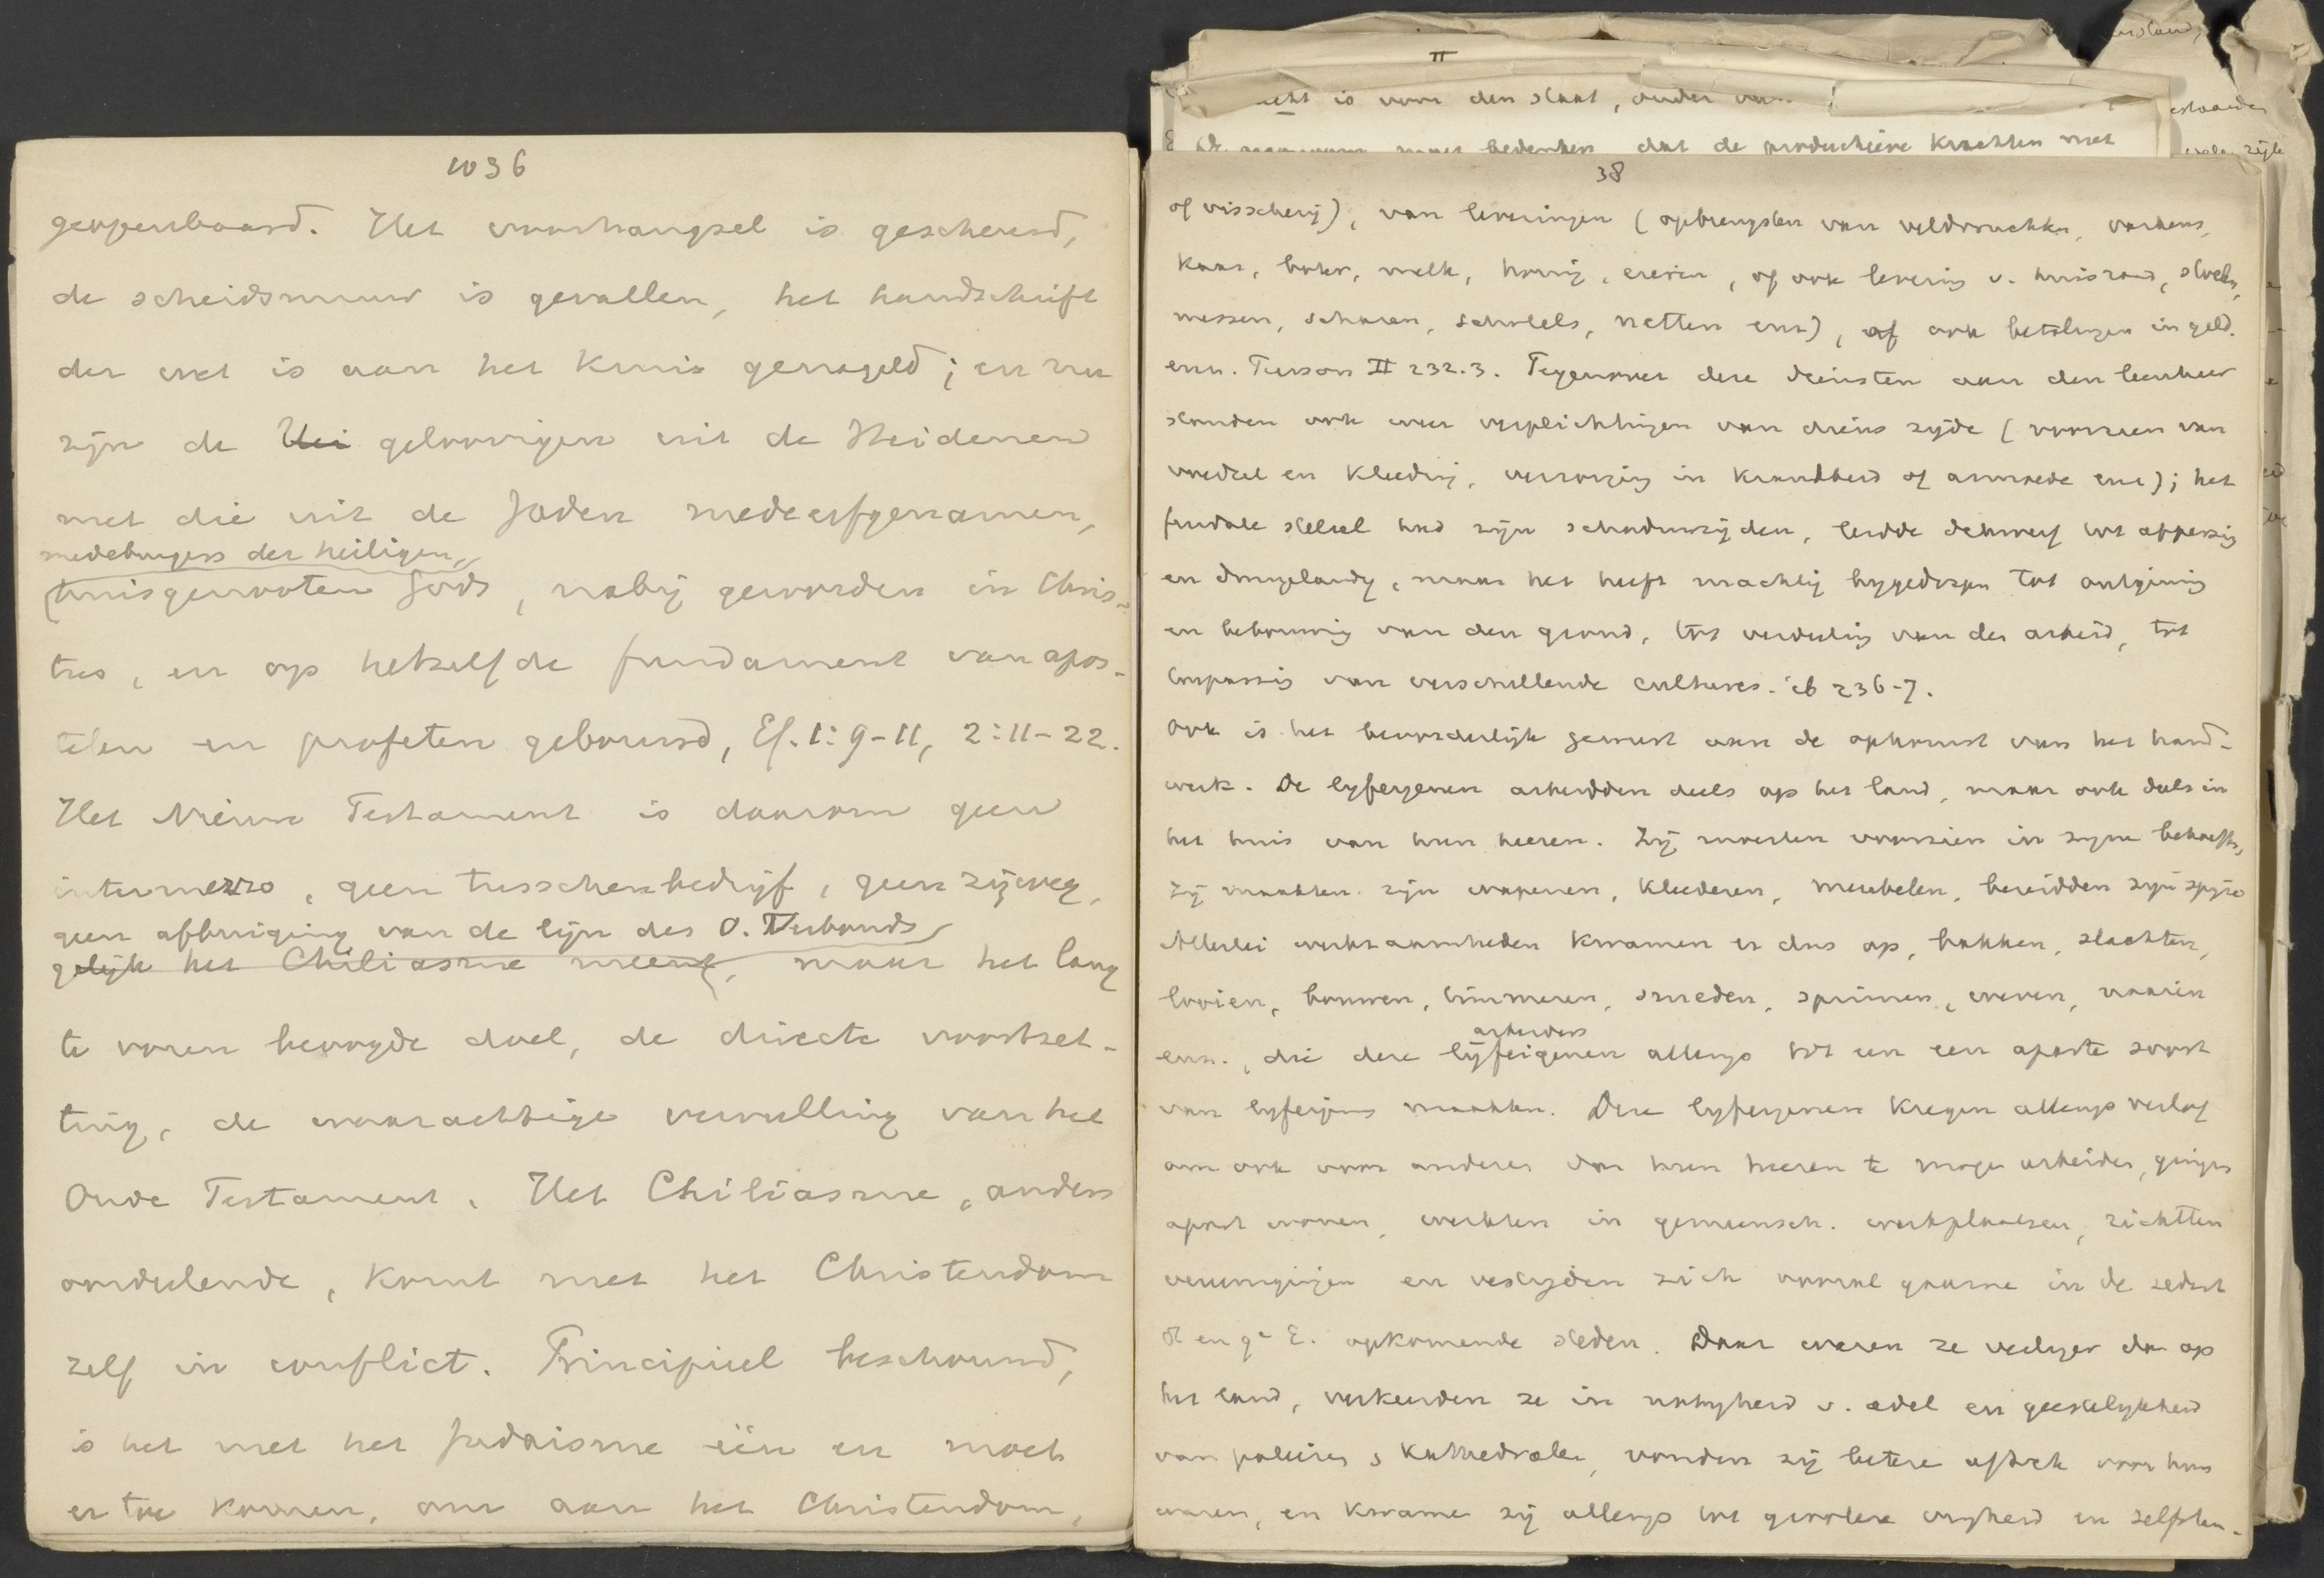 1036
geopenbaard. Het voorhangsel is gescheurd,
de scheidsmuur is gevallen, het handschrift
der wet is aan het kruis genageld; en nu
zijn de Hei geloovigen uit de Heidenen
met die uit de Joden medeerfgenamen,
medeburgers der heiligen,
huisgenooten Gods, nabij geworden in Chris-
tus, en op hetzelfde fundament van apos-
telen en profeten gebouwd, Ef. 1:9-11, 2:11-22.
Het Nieuwe Testament is daarom geen
intermezzo, geen tusschenbedrijf, geen zijweg,
geen afbuiging van de lijn des O. Verbonds
gelijk het Chiliasme meent, maar het lang
te voren beoogde doel, de directe voortzet-
ting, de waarachtige vervulling van het
Oude Testament. Het Chiliasme, anders
oordeelende, komt met het Christendom
zelf in conflict. Principieel beschouwd,
is het met het Judaisme één en moet
er toe komen, om aan het Christendom,
II
is voor den staat, onder
bedenken dat de productieve krachten met
38
of visscherij), van leveringen (opbrengsten van veldvruchten, varkens,
kaas, boter, melk, honig, eieren, of ook levering v. huisraad, stoelen,
messen, scharen, schotels, netten enz), of ook betalingen in geld.
enz. II 232.3. Tegenover deze diensten aan den leenheer
stonden ook weer verplichtingen van diens zijde (voorzien van
voedsel en kleeding, verzorging in krankheid of armoede enz); het
feudale stelsel had zijn schaduwzijden, leidde dikwerf tot
en dwingelandij, maar het heeft machtig bijgedragen tot ontginning
en bebouwing van den grond, tot verdeeling van den arbeid, tot
toepassing van verschillende cultures. ib 236-7.
Ook is het bevorderlijk geweest aan de opkomst van het hand-
werk. De lijfeigenen arbeidden deels op het land, maar ook deels in
het huis van hun heeren. Zij moesten voorzien in zijne behoeften,
zij maakten zijn wapenen, kleederen, meubelen, bereidden zijn spijze
Allerlei werkzaamheden kwamen er dus op, bakken, slachten,
looien, bouwen, timmeren, smeden, spinnen, weven, naaien
arbeiders
enz., die deze lijfeigenen allengs tot een een aparte soort
van lijfeigenen maakten. Deze lijfeigenen kregen allengs verlof
om ook voor anderen dan hun heeren te mogen arbeiden, gingen
apart wonen, werkten in gemeensch. werkplaatsen, stichtten
vereenigingen en vestigden zich vooral gaarne in de sedert
8e en 9e E. opkomende steden. Daar waren ze veiliger dan op
het land, verkeerden ze in nabijheid v. adel en geestelijkheid
van paleizen & kathedralen, vonden zij betere aftrek voor hun
waren, en kwamen zij allengs tot grootere vrijheid en zelfstan-